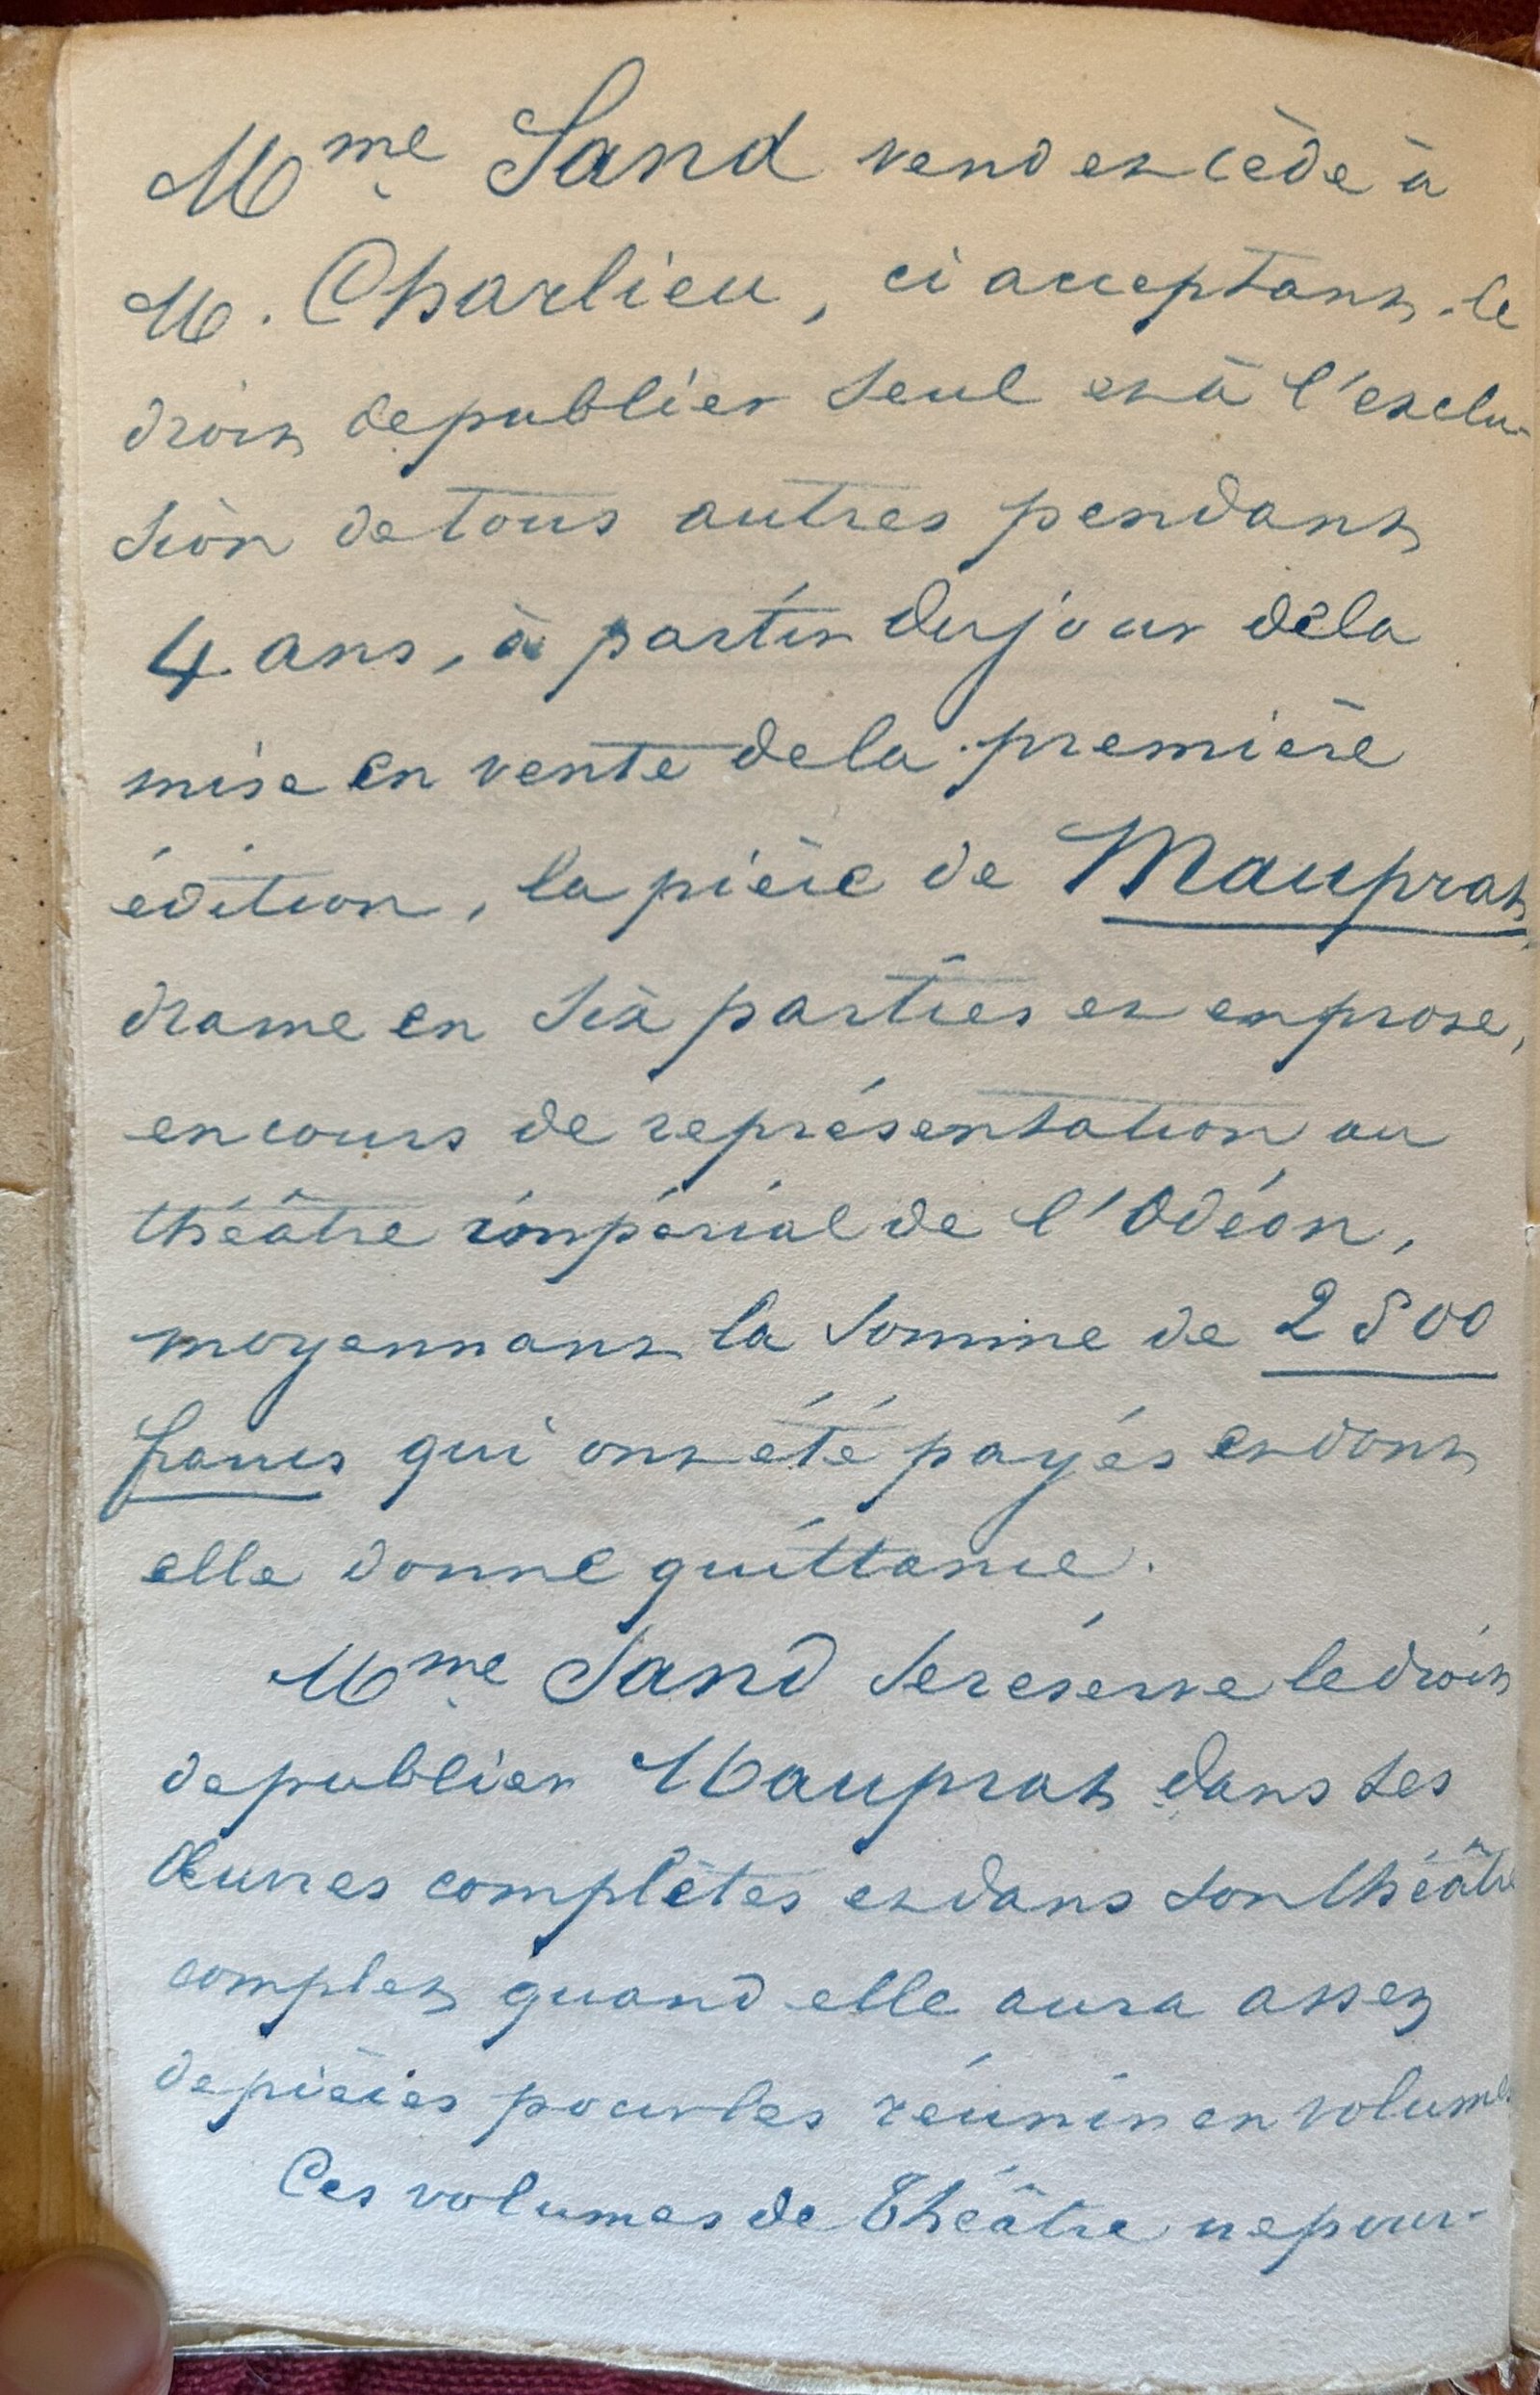 Mme Sand vend et cède à
M. Charlieu, ci acceptant, le
droit de publier seul et à l'exclu-
sion de tous autres pendant
4 ans, à partir du jour de la
mise en vente de la première
édition, la pièce de Mauprat,
drame en six parties et en prose,
en cours de représentation au
théâtre impérial de l'Odéon,
moyennant la somme de 2500
francs qui ont été payés et dont
elle donne quittance.
Mme Sand se réserve le droit
de publier Mauprat dans ses
Œuvres complètes et dans son théâtre
complet quand elle aura assez
de pièces pour les réunir en volumes
Ces volumes de Théâtre ne pour-